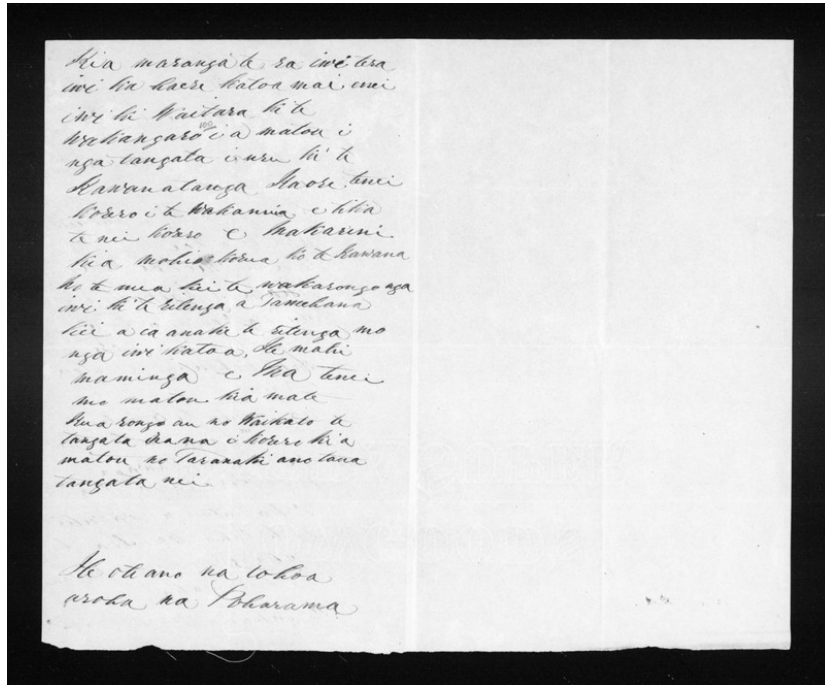 Kia maranga te ra iwi tera
iwi kia haere katoa mai enei
iwi ki Waitara ki te
100
wakangaro i a matou i
nga tangata i uru ki te
Kawanatanga Kaore tenei
korero i te wakanuia e titia
te nei korero e Makarini
kia mohio korua ko te Kawana
ko te mea kei te wakarongo nga
iwi ki te ritenga a Tamehana
kei a ia anake te ritenga mo
nga iwi katoa, He mahi
maminga e Ma tenei
mo matou kia mate
Kua rongo au no Waikato te
tangata nana i korero ki a
matou no Taranaki ano taua
tangata nei.
He oti ano na to hoa
aroha na Poharama